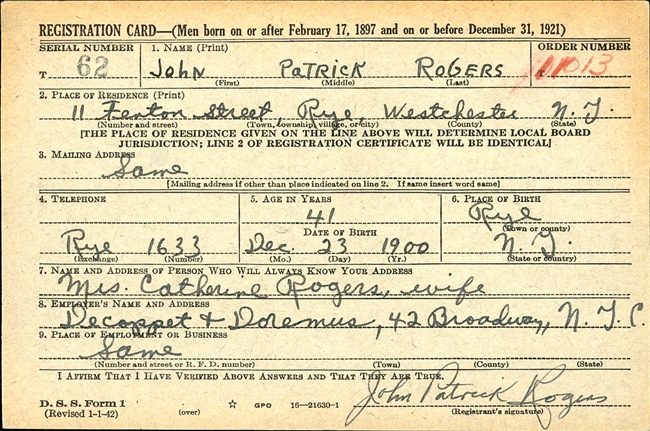 REGISTRATION CARD—(Men born on or after February 17, 1897 and on or before December 31, 1921)
SERIAL NUMBER 1. NAME (Print) ORDER NUMBER
T 62 JOHN PATRICK ROGERS T 11013
(First) (Middle) (Last)
2. PLACE OF RESIDENCE (Print)
11 Fenton Street, Rye, Westchester N. Y.
(Number and street) (Town, township, village, or city) (County) (State)
[THE PLACE OF RESIDENCE GIVEN ON THE LINE ABOVE WILL DETERMINE LOCAL BOARD
JURISDICTION; LINE 2 OF REGISTRATION CERTIFICATE WILL BE IDENTICAL]
3. MAILING ADDRESS
Same
[Mailing address if other than place indicated on line 2. If same insert word same]
4. TELEPHONE 5. AGE IN YEARS 6. PLACE OF BIRTH
41 Rye
DATE OF BIRTH (Town or county)
Rye 1633 Dec. 23 1900 N. Y.
(Exchange) (Number) (Mo.) (Day) (Yr.) (State or country)
7. NAME AND ADDRESS OF PERSON WHO WILL ALWAYS KNOW YOUR ADDRESS
Mrs. Catherine Rogers, wife
8. EMPLOYER'S NAME AND ADDRESS
Decoppet + Doremus, 42 Broadway, N. Y. C.
9. PLACE OF EMPLOYMENT OR BUSINESS
Same
(Number and street or R. F. D. number) (Town) (County) (State)
I AFFIRM THAT I HAVE VERIFIED ABOVE ANSWERS AND THAT THEY ARE TRUE.
John Patrick Rogers
D. S. S. Form 1 (over) ☆ GPO 16—21630-1 (Registrant's signature)
(Revised 1-1-42)